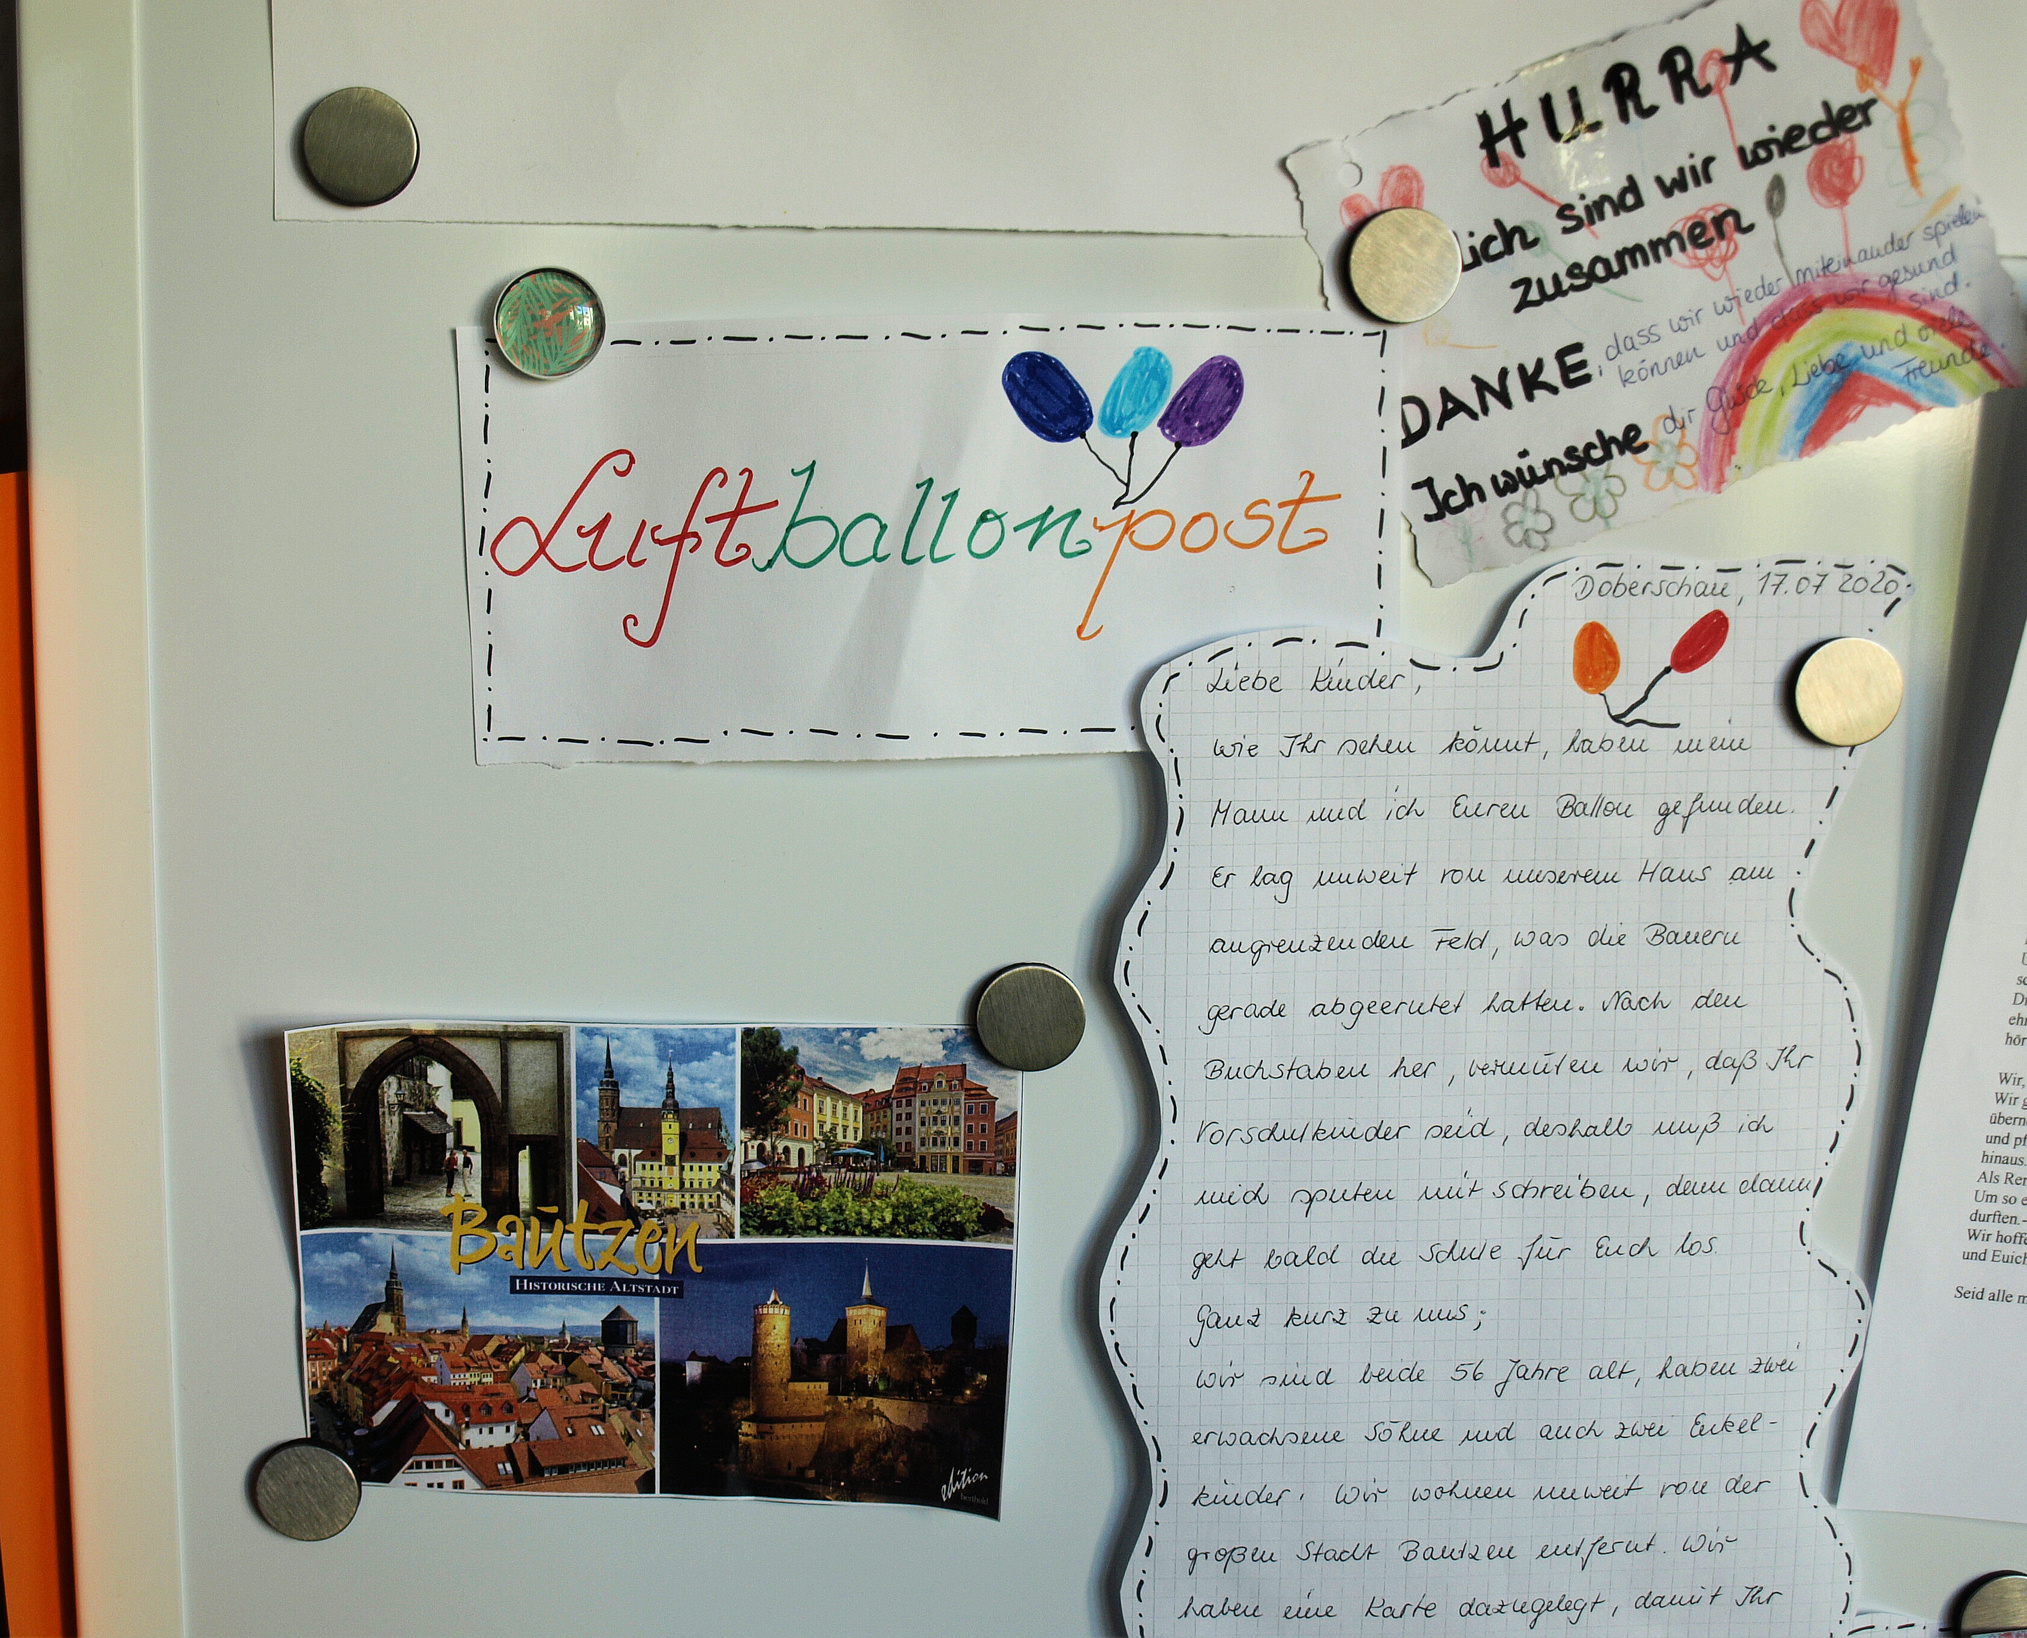 HURRA
lich sind wir wieder
zusammen
DANKE, dass wir wieder miteinander spielen
können und dass wir gesund
sind.
Ich wünsche dir Glück, Liebe und viele
Freunde.
Luftballonpost
Doberschau, 17.07 2020
Liebe Kinder,
wie Ihr sehen könnt, haben mein
Mann und ich Euren Ballon gefunden.
Er lag unweit von unserem Haus am
angrenzenden Feld, was die Bauern
gerade abgeerntet hatten. Nach den
Buchstaben her, vermuten wir, daß Ihr
Vorschulkinder seid, deshalb muß ich
mich sputen mit schreiben, denn dann
geht bald die Schule für Euch los.
Ganz kurz zu uns;
wir sind beide 56 Jahre alt, haben zwei
erwachsene Söhne und auch zwei Enkel-
kinder. Wir wohnen unweit von der
großen Stadt Bautzen entfernt. Wir
haben eine Karte dazugelegt, damit Ihr
Bautzen
HISTORISCHE ALTSTADT
edition
hör
Wir,
Wir g
übern
und pf
hinaus.
Als Ren
Um so e
durften.-
Wir hoffe
und Euich
Seid alle m